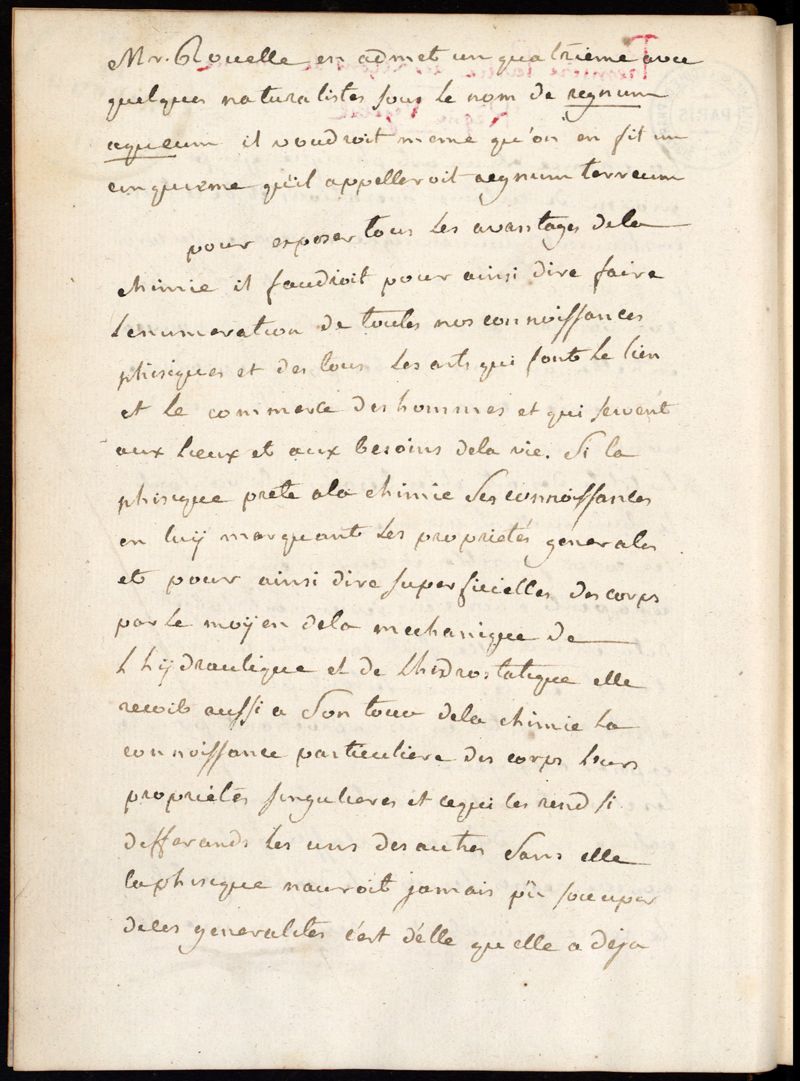 Mr. Rouelle en admet un quatrieme avec
quelques naturalistes sous le nom de regnum
aqueum il voudroit meme qu'on en fit un
cinquieme qu'il appelleroit regnum terreum
pour exposer tous les avantages dela
chimie il faudroit pour ainsi dire faire
Lenumeration de toutes nos connoissances
phisiques et des tous les arts qui font le lien
et le commerce des hommes et qui servent
aux lieux et aux besoins dela vie. Si la
phisique prete ala chimie ses connoissances
en luÿ marquant les proprietés generales
et pour ainsi dire superficielles des corps
par le moÿen dela mechanique de
Lhÿdraulique et de Lhidrostatique elle
recoit aussi a son tour dela chimie la
connoissance particuliere des corps leurs
proprietés singulieres et cequi les rend si
differands les uns des autres sans elle
la phisique nauroit jamais pû soccuper
deces generalités c'est d'elle qu'elle a deja
PARIS